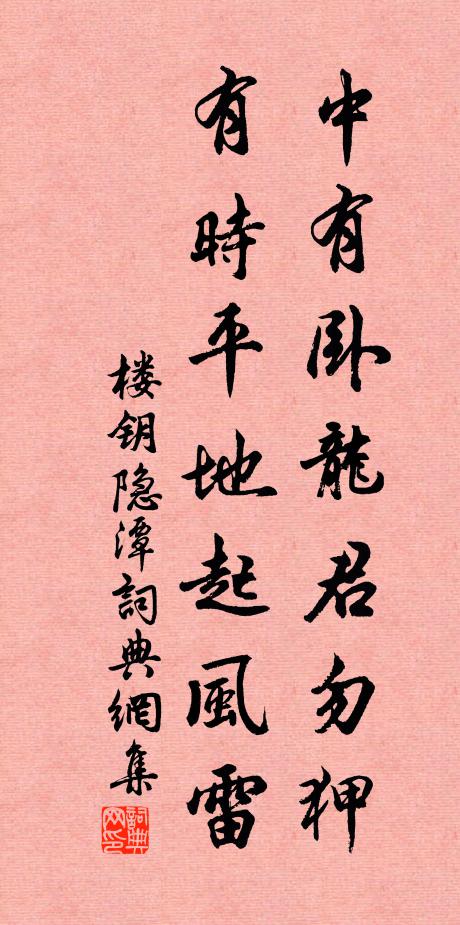 中有卧龍君勿狎
有時平地起風雷
楼钥隐潭詞典網集
詞典网印